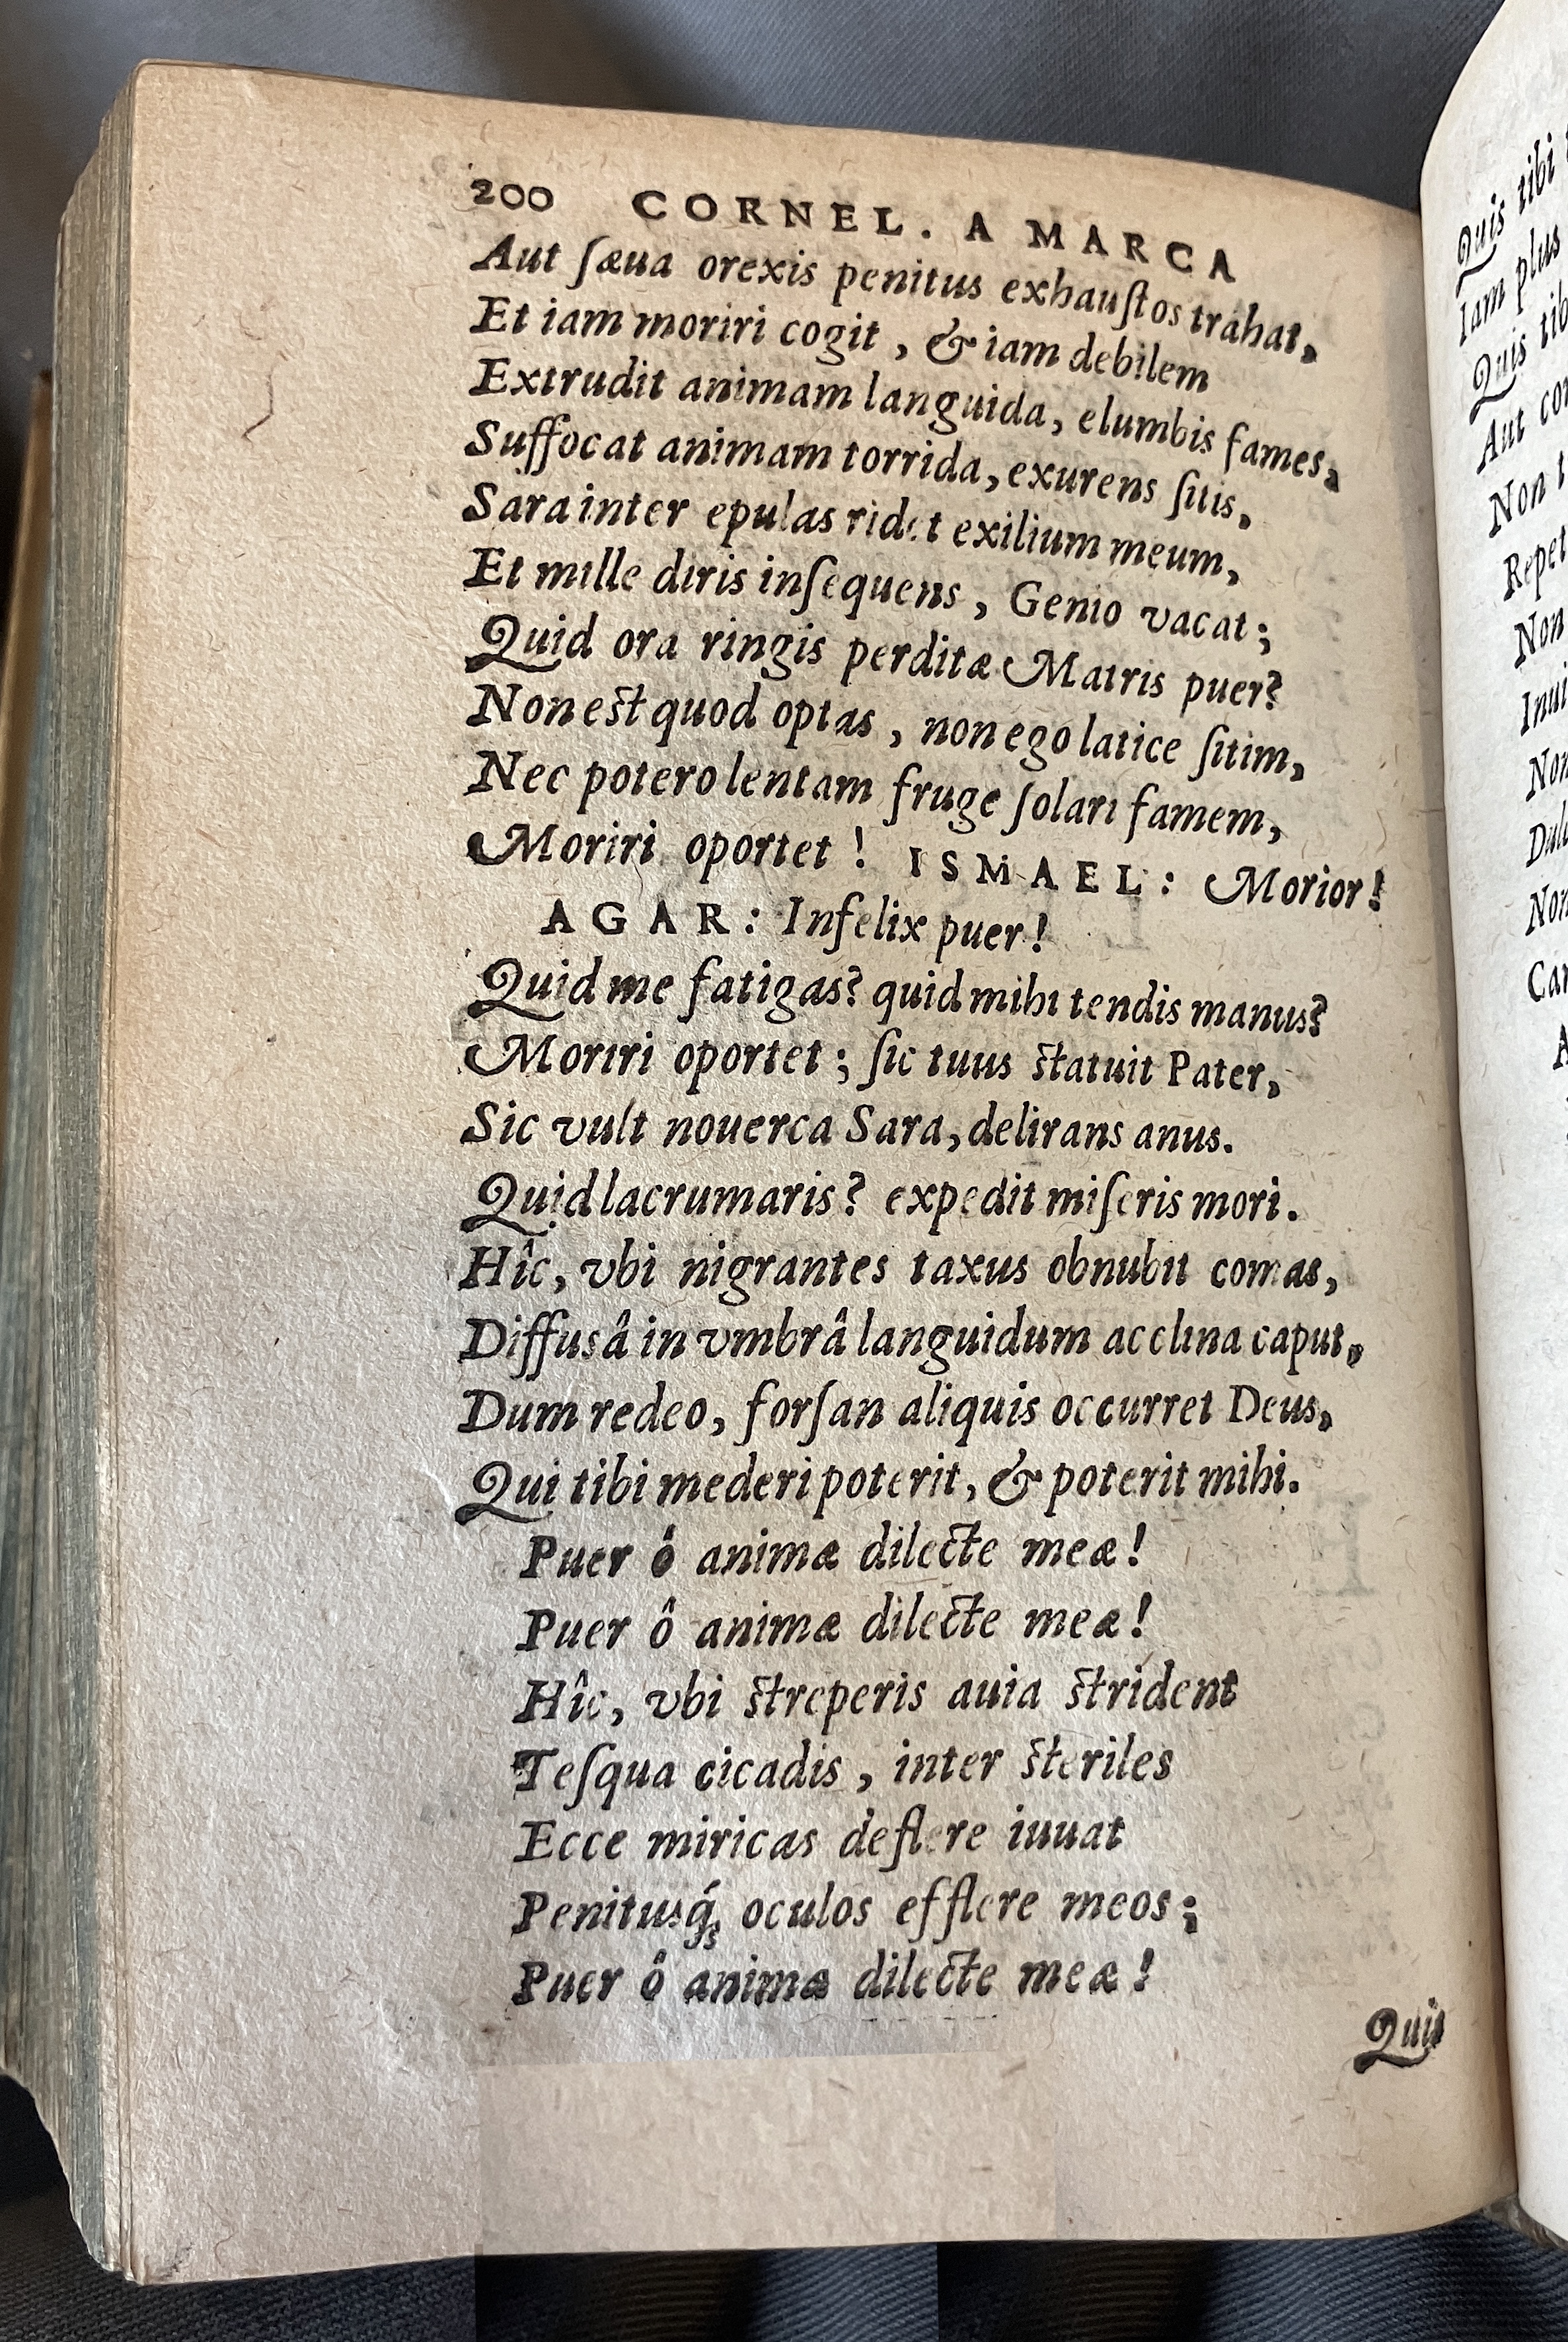 200 CORNEL. A MARCA
Aut ſæua orexis penitus exhauſtos trahat,
Et iam moriri cogit, & iam debilem
Extrudit animam languida, elumbis fames,
Suffocat animam torrida, exurens ſitis,
Sara inter epulas ridet exilium meum,
Et mille diris inſequens, Genio vacat;
Quid ora ringis perditæ Matris puer?
Non eſt quod optas, non ego latice ſitim,
Nec potero lentam fruge ſolari famem,
Moriri oportet! ISMAEL: Morior!
AGAR: Infelix puer!
Quid me fatigas? quid mihi tendis manus?
Moriri oportet; ſic tuus ſtatuit Pater,
Sic vult nouerca Sara, delirans anus.
Quid lacrumaris? expedit miſeris mori.
Hîc, vbi nigrantes taxus obnubit comas,
Diffusâ in vmbrâ languidum acclina caput,
Dum redeo, forſan aliquis occurret Deus,
Qui tibi mederi poterit, & poterit mihi.
Puer ô animæ dilecte meæ!
Puer ô animæ dilecte meæ!
Hîc, vbi ſtreperis auia ſtrident
Teſqua cicadis, inter ſteriles
Ecce miricas deflere iuuat
Penitusq́ꝫ oculos efflere meos;
Puer ô animæ dilecte meæ!
Quis
Quis tibi
Iam plus
Quis
Aut
Non
Non
Non